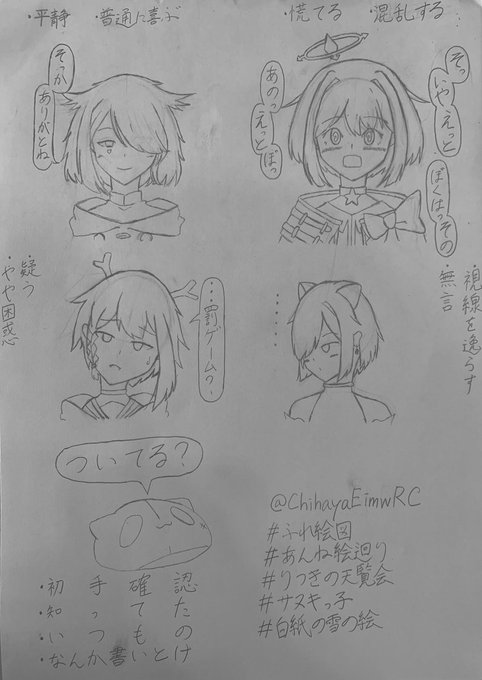 ・平静 ・普通に喜ぶ
・慌てる ・混乱する
そっか
ありがとね
そっ
いや
えっと
ぼくはっその
あのっ
えっと
ぼっ
・疑う
・やや困惑
・・・罰ゲーム？
・視線を逸らす
・無言
・・・・・
ついてる？
・初手確認
・知ってた
・いつもの
・なんか書いとけ
@ChihayaEimwRC
#ふれ絵図
#あんね絵廻り
#りつきの天覧会
#サヌキっ子
#白紙の雪の絵